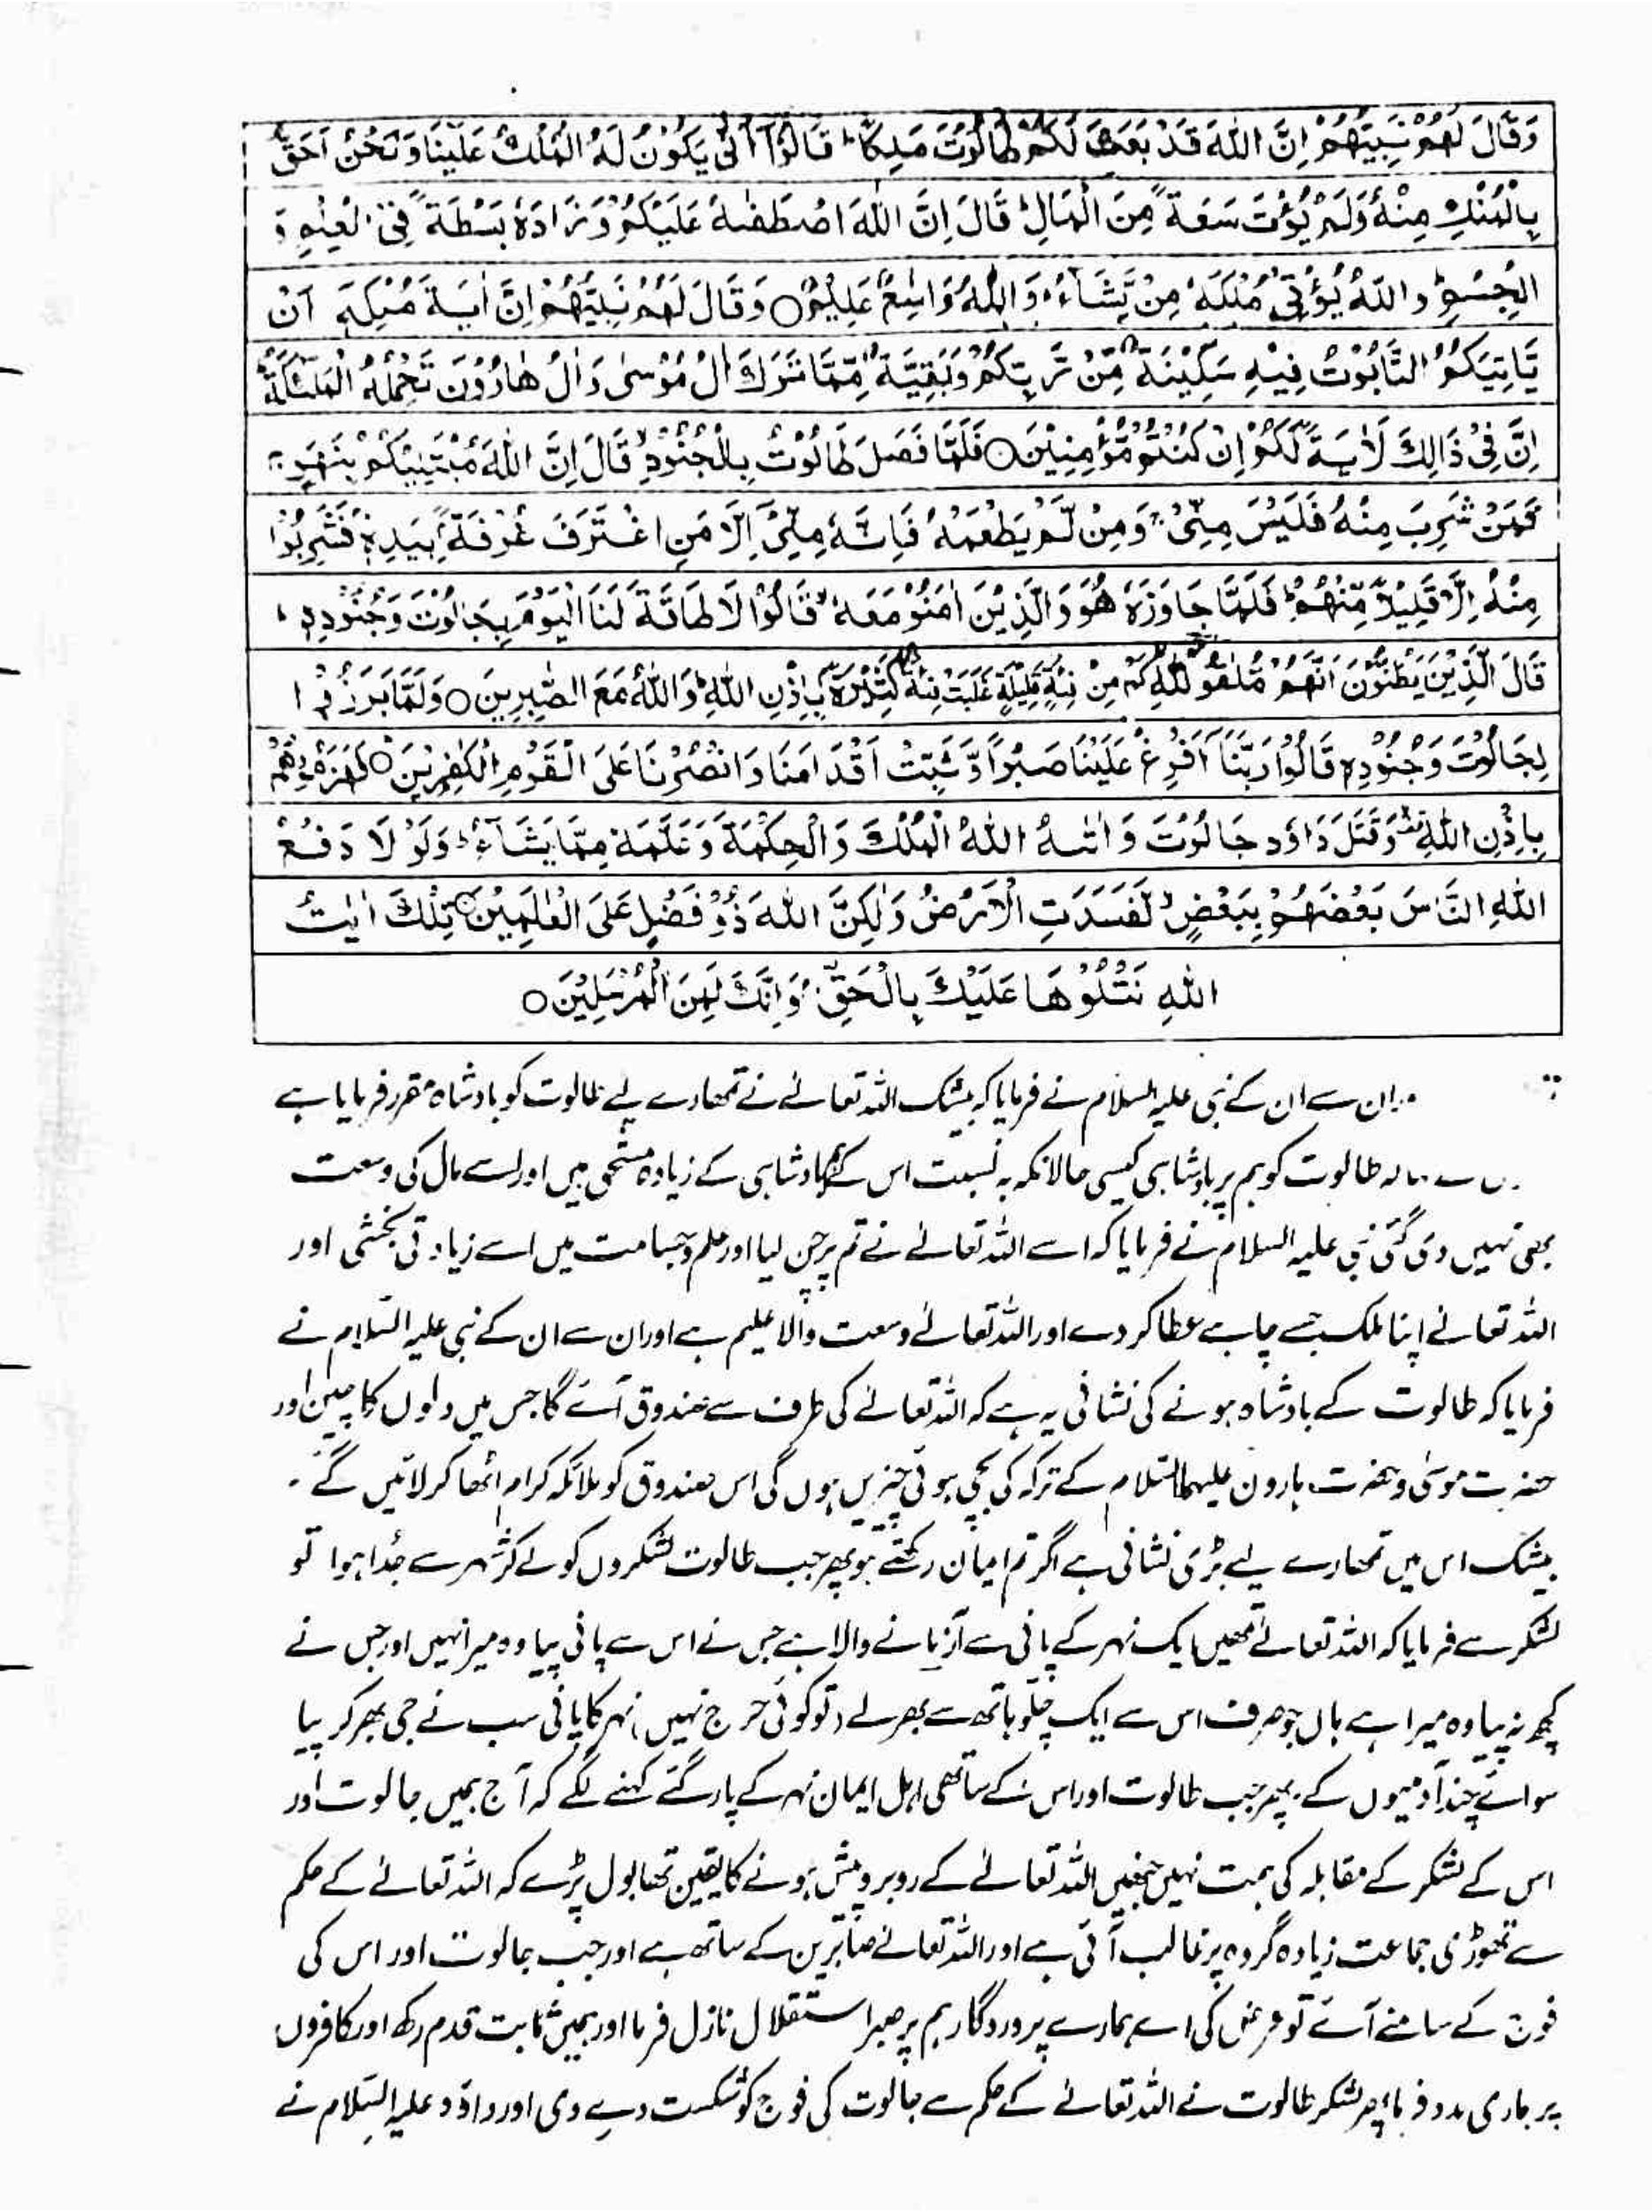 وَقَالَ لَهُمْ نَبِيُّهُمْ اِنَّ اللّٰهَ قَدْ بَعَثَ لَكُمْ طَالُوْتَ مَلِكًا ؕ قَالُوْٓا اَنّٰى يَكُوْنُ لَهُ الْمُلْكُ عَلَيْنَا وَنَحْنُ اَحَقُّ
بِالْمُلْكِ مِنْهُ وَلَمْ يُؤْتَ سَعَةً مِّنَ الْمَالِ ؕ قَالَ اِنَّ اللّٰهَ اصْطَفٰىهُ عَلَيْكُمْ وَزَادَهٗ بَسْطَةً فِى الْعِلْمِ وَ
الْجِسْمِ ؕ وَاللّٰهُ يُؤْتِىْ مُلْكَهٗ مَنْ يَّشَآءُ ؕ وَاللّٰهُ وَاسِعٌ عَلِيْمٌ ○ وَقَالَ لَهُمْ نَبِيُّهُمْ اِنَّ اٰيَةَ مُلْكِهٖٓ اَنْ
يَّاْتِيَكُمُ التَّابُوْتُ فِيْهِ سَكِيْنَةٌ مِّنْ رَّبِّكُمْ وَبَقِيَّةٌ مِّمَّا تَرَكَ اٰلُ مُوْسٰى وَاٰلُ هٰارُوْنَ تَحْمِلُهُ الْمَلٰٓئِكَةُ ؕ
اِنَّ فِىْ ذَالِكَ لَاٰيَةً لَّكُمْ اِنْ كُنْتُمْ مُّؤْمِنِيْنَ ○ فَلَمَّا فَصَلَ طَالُوْتُ بِالْجُنُوْدِ ۙ قَالَ اِنَّ اللّٰهَ مُبْتَلِيْكُمْ بِنَهَرٍ ۚ
فَمَنْ شَرِبَ مِنْهُ فَلَيْسَ مِنِّىْ ۚ وَمَنْ لَّمْ يَطْعَمْهُ فَاِنَّهٗ مِنِّىْٓ اِلَّا مَنِ اغْتَرَفَ غُرْفَةً ۢبِيَدِهٖ ۚ فَشَرِبُوْا
مِنْهُ اِلَّا قَلِيْلًا مِّنْهُمْ ؕ فَلَمَّا جَاوَزَهٗ هُوَ وَالَّذِيْنَ اٰمَنُوْ مَعَهٗ ۙ قَالُوْا لَا طَاقَةَ لَنَا الْيَوْمَ بِجَالُوْتَ وَجُنُوْدِهٖ ؕ
قَالَ الَّذِيْنَ يَظُنُّوْنَ اَنَّهُمْ مُّلٰقُو اللّٰهِ كَمْ مِّنْ فِئَةٍ قَلِيْلَةٍ غَلَبَتْ فِئَةً كَثِيْرَةً بِاِذْنِ اللّٰهِ ؕ وَاللّٰهُ مَعَ الصّٰبِرِيْنَ ○ وَلَمَّا بَرَزُوْا
لِجَالُوْتَ وَجُنُوْدِهٖ قَالُوْا رَبَّنَآ اَفْرِغْ عَلَيْنَا صَبْرًا وَّثَبِّتْ اَقْدَامَنَا وَانْصُرْنَا عَلَى الْقَوْمِ الْكٰفِرِيْنَ ○ فَهَزَمُوْهُمْ
بِاِذْنِ اللّٰهِ ۙ وَقَتَلَ دَاوٗدُ جَالُوْتَ وَاٰتٰىهُ اللّٰهُ الْمُلْكَ وَالْحِكْمَةَ وَعَلَّمَهٗ مِمَّا يَشَآءُ ؕ وَلَوْ لَا دَفْعُ
اللّٰهِ النَّاسَ بَعْضَهُمْ بِبَعْضٍ ۙ لَّفَسَدَتِ الْاَرْضُ وَلٰكِنَّ اللّٰهَ ذُوْ فَضْلٍ عَلَى الْعٰلَمِيْنَ ○ تِلْكَ اٰيٰتُ
اللّٰهِ نَتْلُوْهَا عَلَيْكَ بِالْحَقِّ ؕ وَاِنَّكَ لَمِنَ الْمُرْسَلِيْنَ ○
ان سے ان کے نبی علیہ السلام نے فرمایا کہ بیشک اللہ تعالےٰ نے تمھارے لیے طالوت کو بادشاہ مقرر فرمایا ہے
طالوت کو ہم پر بادشاہی کیسی حالانکہ بہ نسبت اس کے ہم بادشاہی کے زیادہ مستحق ہیں اور اسے مال کی وسعت
بھی نہیں دی گئی نبی علیہ السلام نے فرمایا کہ اسے اللہ تعالےٰ نے تم پر چن لیا اور علم و جسامت میں اسے زیادتی بخشی اور
اللہ تعالےٰ اپنا ملک جسے چاہے عطا کر دے اور اللہ تعالےٰ وسعت والا علیم ہے اور ان سے ان کے نبی علیہ السّلام نے
فرمایا کہ طالوت کے بادشاہ ہونے کی نشانی یہ ہے کہ اللہ تعالےٰ کی طرف سے صندوق آئے گا جس میں دلوں کا چین اور
حضرت موسیٰ و حضرت ہارون علیہما السّلام کے ترکہ کی بچی ہوئی چیزیں ہوں گی اس صندوق کو ملائکہ کرام اٹھا کر لائیں گے۔
بیشک اس میں تمھارے لیے بڑی نشانی ہے اگر تم ایمان رکھتے ہو پھر جب طالوت لشکروں کو لے کر شہر سے جُدا ہوا تو
لشکر سے فرمایا کہ اللہ تعالےٰ تمھیں ایک نہر کے پانی سے آزمانے والا ہے جس نے اس سے پانی پیا وہ میرا نہیں اور جس نے
کچھ نہ پیا وہ میرا ہے ہاں جو صرف اس سے ایک چلّو ہاتھ سے بھر لے (تو کوئی حرج نہیں) نہر کا پانی سب نے جی بھر کر پیا
سوائے چند آدمیوں کے پھر جب طالوت اور اس کے ساتھی اہل ایمان نہر کے پار گئے کہنے لگے کہ آج ہمیں جالوت اور
اس کے لشکر کے مقابلہ کی ہمت نہیں جنھیں اللہ تعالےٰ کے روبرو پیش ہونے کا یقین تھا بول پڑے کہ اللہ تعالےٰ کے حکم
سے تھوڑی جماعت زیادہ گروہ پر غالب آئی ہے اور اللہ تعالےٰ صابرین کے ساتھ ہے اور جب جالوت اور اس کی
فوج کے سامنے آئے تو عرض کی اے ہمارے پروردگار ہم پر صبر استقلال نازل فرما اور ہمیں ثابت قدم رکھ اور کافروں
پر ہماری مدد فرما، پھر لشکر طالوت نے اللہ تعالےٰ کے حکم سے جالوت کی فوج کو شکست دے دی اور داؤد علیہ السّلام نے